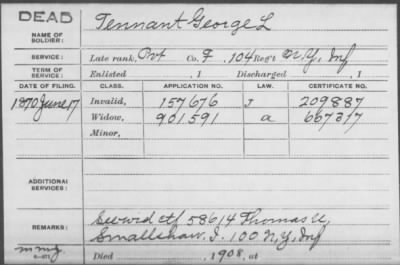 DEAD
NAME OF SOLDIER: Tennant George L
SERVICE: Late rank, Pvt Co. F, 104 Reg't N.Y. Inf
TERM OF SERVICE: Enlisted , 1 Discharged , 1
DATE OF FILING. CLASS. APPLICATION NO. LAW. CERTIFICATE NO.
1870 June 17 Invalid, 157676 J 209887
Widow, 901.591 a 667317
Minor,
ADDITIONAL SERVICES:
REMARKS: See wid ctf 58614 Thomas
Smallshaw, I. 100 N.Y. Inf
Died , 1908, at